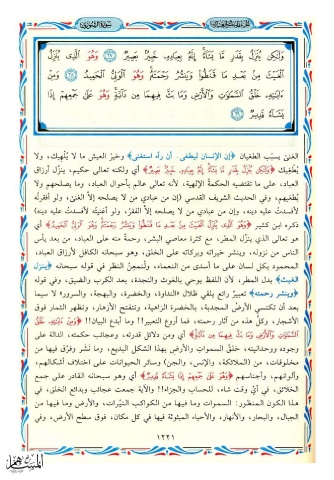 سورة الشورى
وَلَٰكِن يُنَزِّلُ بِقَدَرٍ مَّا يَشَاءُ إِنَّهُ بِعِبَادِهِ خَبِيرٌ بَصِيرٌ ﴿٢٧﴾ وَهُوَ الَّذِي يُنَزِّلُ
الْغَيْثَ مِن بَعْدِ مَا قَنَطُوا وَيَنشُرُ رَحْمَتَهُ وَهُوَ الْوَلِيُّ الْحَمِيدُ ﴿٢٨﴾ وَمِنْ
آيَاتِهِ خَلْقُ السَّمَاوَاتِ وَالْأَرْضِ وَمَا بَثَّ فِيهِمَا مِن دَابَّةٍ وَهُوَ عَلَىٰ جَمْعِهِمْ إِذَا
يَشَاءُ قَدِيرٌ ﴿٢٩﴾
الغنى بسبب الطغيان ﴿إن الإنسان ليطغى. أن رآه استغنى﴾ وخيرُ العيش ما لا يُلهيك، ولا
يُطغيك ﴿وَلَٰكِن يُنَزِّلُ بِقَدَرٍ مَّا يَشَاءُ إِنَّهُ بِعِبَادِهِ خَبِيرٌ بَصِيرٌ﴾ أي ولكنه تعالى حكيم، ينزّل أرزاق
العباد، على ما تقتضيه الحكمة الإلهية، لأنه تعالى عالم بأحوال العباد، وما يصلحهم ولا
يُطغيهم، وفي الحديث الشريف القدسي (إن من عبادي من لا يصلحه إلاّ الغنى، ولو أفقرتُه
لأفسدتُ عليه دينه، وإن من عبادي من لا يصلحه إلاّ الفقرُ، ولو أغنيتُه لأفسدتُ عليه دينه)
ذكره ابن كثير ﴿وَهُوَ الَّذِي يُنَزِّلُ الْغَيْثَ مِن بَعْدِ مَا قَنَطُوا وَيَنشُرُ رَحْمَتَهُ وَهُوَ الْوَلِيُّ الْحَمِيدُ﴾ أي
هو تعالى الذي ينزّل المطر، مع كثرة معاصي البشر، رحمةً منه على العباد، من بعد يأس
الناس من نزوله، وينشر خيراته وبركاته على الخلق، وهو سبحانه الكافل لأرزاق العباد،
المحمود بكل لسان على ما أسدى من النعماء، ولنُمعِنْ النظر في قوله سبحانه ﴿ينزل
الغيث﴾ بدل المطر، لأن اللفظ يوحي بالغوث والنجدة، بعد الكرب والضيق، وفي قوله
﴿وينشر رحمته﴾ تعبيرٌ رائع يلقي ظلال «النداوة، والخضرة، والبهجة، والسرور» لا سيما
بعد أن تكتسي الأرضُ المجدبة، بالخضرة الزاهية، وتتفتح الأزهار، وتظهر الثمار فوق
الأشجار، وكلُّ هذه من آثار رحمته، فما أروع التعبير!! وما أبدع البيان!! ﴿وَمِنْ آيَاتِهِ خَلْقُ
السَّمَاوَاتِ وَالْأَرْضِ وَمَا بَثَّ فِيهِمَا مِن دَابَّةٍ﴾ أي ومن دلائل قدرته، وعجائب حكمته، الدالة على
وجوده ووحدانيته، خلقُ السموات والأرض بهذا الشكل البديع، وما نشر وفرَّق فيها من
مخلوقات، من (الملائكة، والإنس، والجن) وسائر الحيوانات على اختلاف أشكالهم،
وألوانهم، وأجناسهم ﴿وَهُوَ عَلَىٰ جَمْعِهِمْ إِذَا يَشَاءُ قَدِيرٌ﴾ أي وهو سبحانه القادر على جمع
الخلائق، في أيِّ وقت شاء، للحساب والجزاء!! والآية جمعت عجائب وبدائع الخلق، في
هذا الكون المنظور: السموات وما فيها من الكواكب النيّرات، والأرض وما فيها من
الجبال، والبحار، والأنهار، والأحياء المبثوثة فيها في كل مكان، فوق سطح الأرض، وفي
١٢٢١